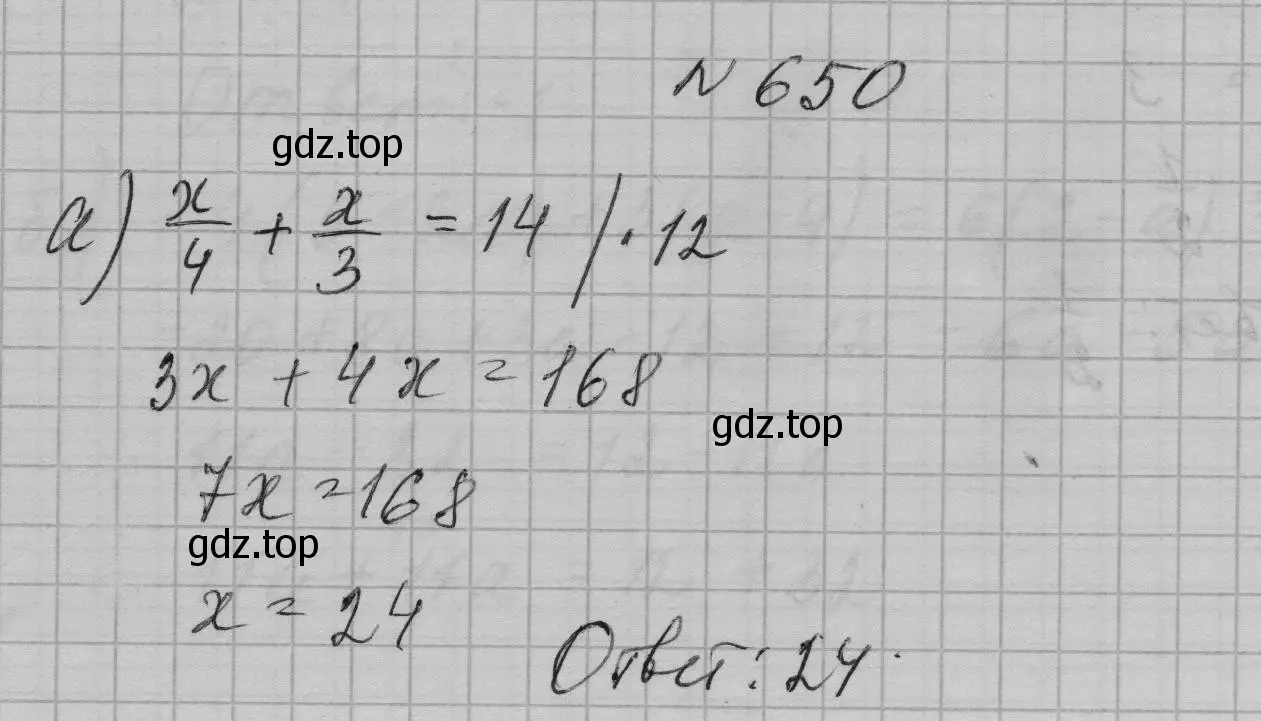 № 650
gdz.top
а) x/4 + x/3 = 14 / · 12
3x + 4x = 168
gdz.top
7x = 168
gdz.top
x = 24
Ответ: 24.